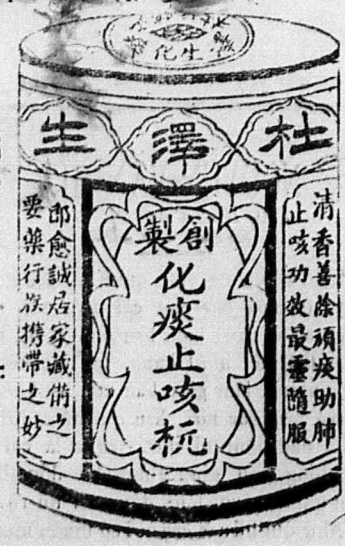 杜澤生
清香善除頑痰助肺
止咳功效最靈隨服
創製
化痰止咳杬
即愈誠居家藏備之
要藥行旅携帶之妙